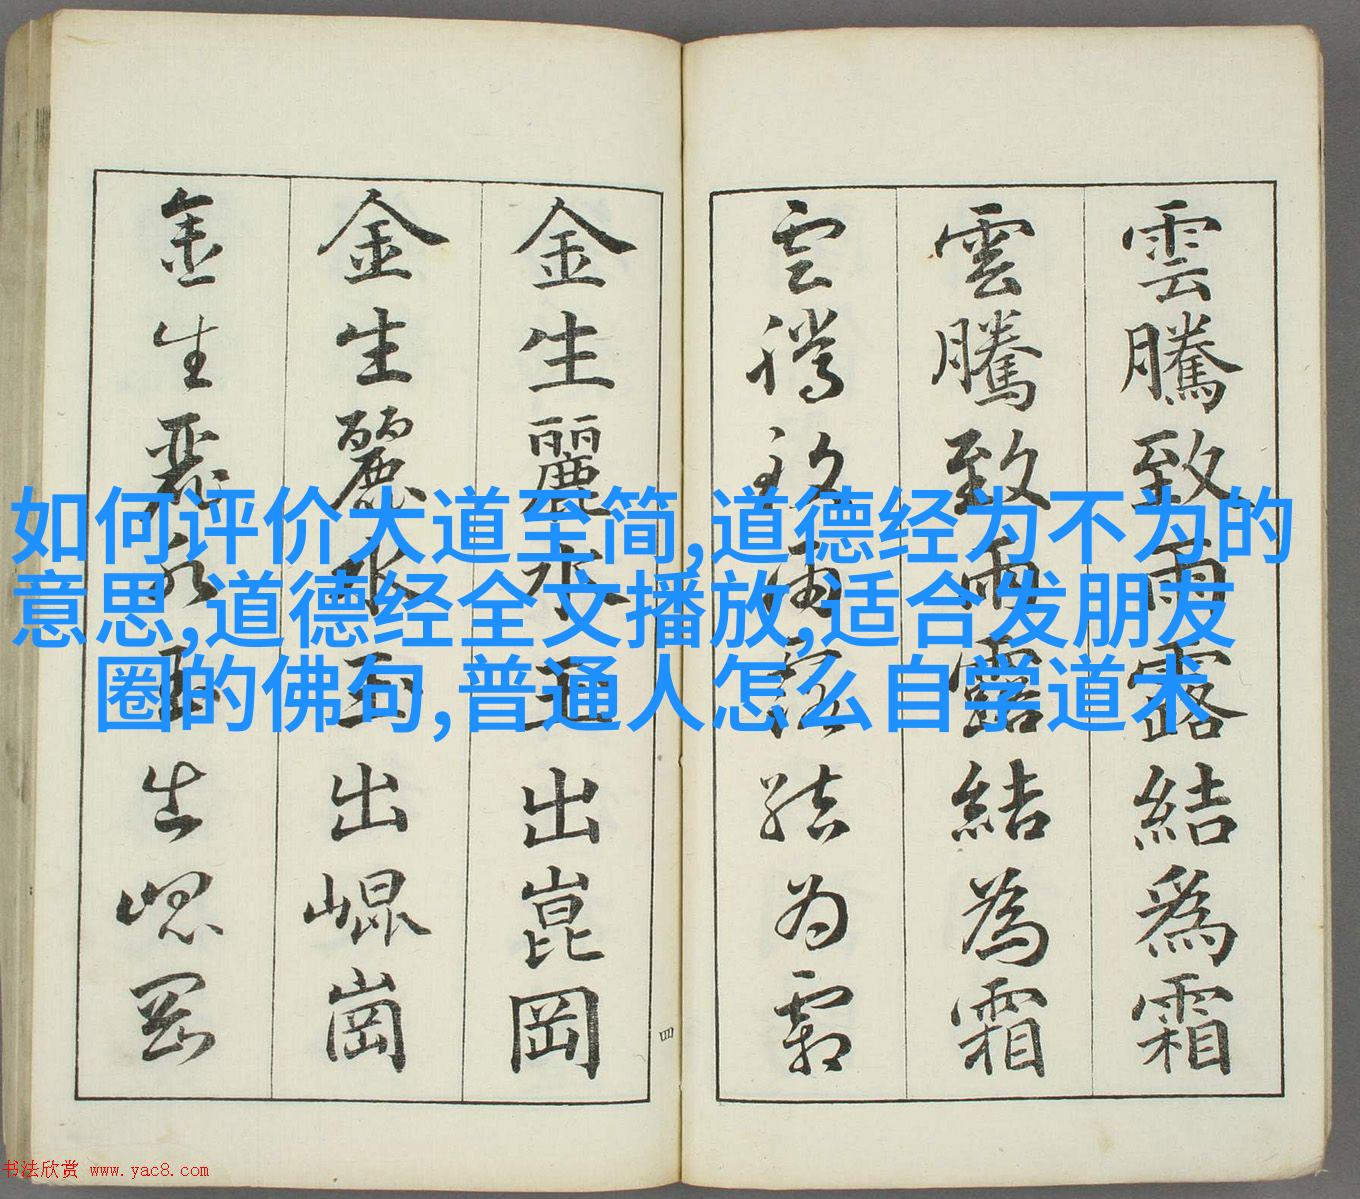 雲騰致雨露結爲霜
雲騰致雨露結為霜
雲騰致雨露结为霜
金生麗水玉出崑岡
金生麗水玉出崐崗
金生麗水玉出崐岡
四
如何评价大道至简,道德经为不为的
意思,道德经全文播放,适合发朋友
圈的佛句,普通人怎么自学道术
书法欣赏 www.yac8.com